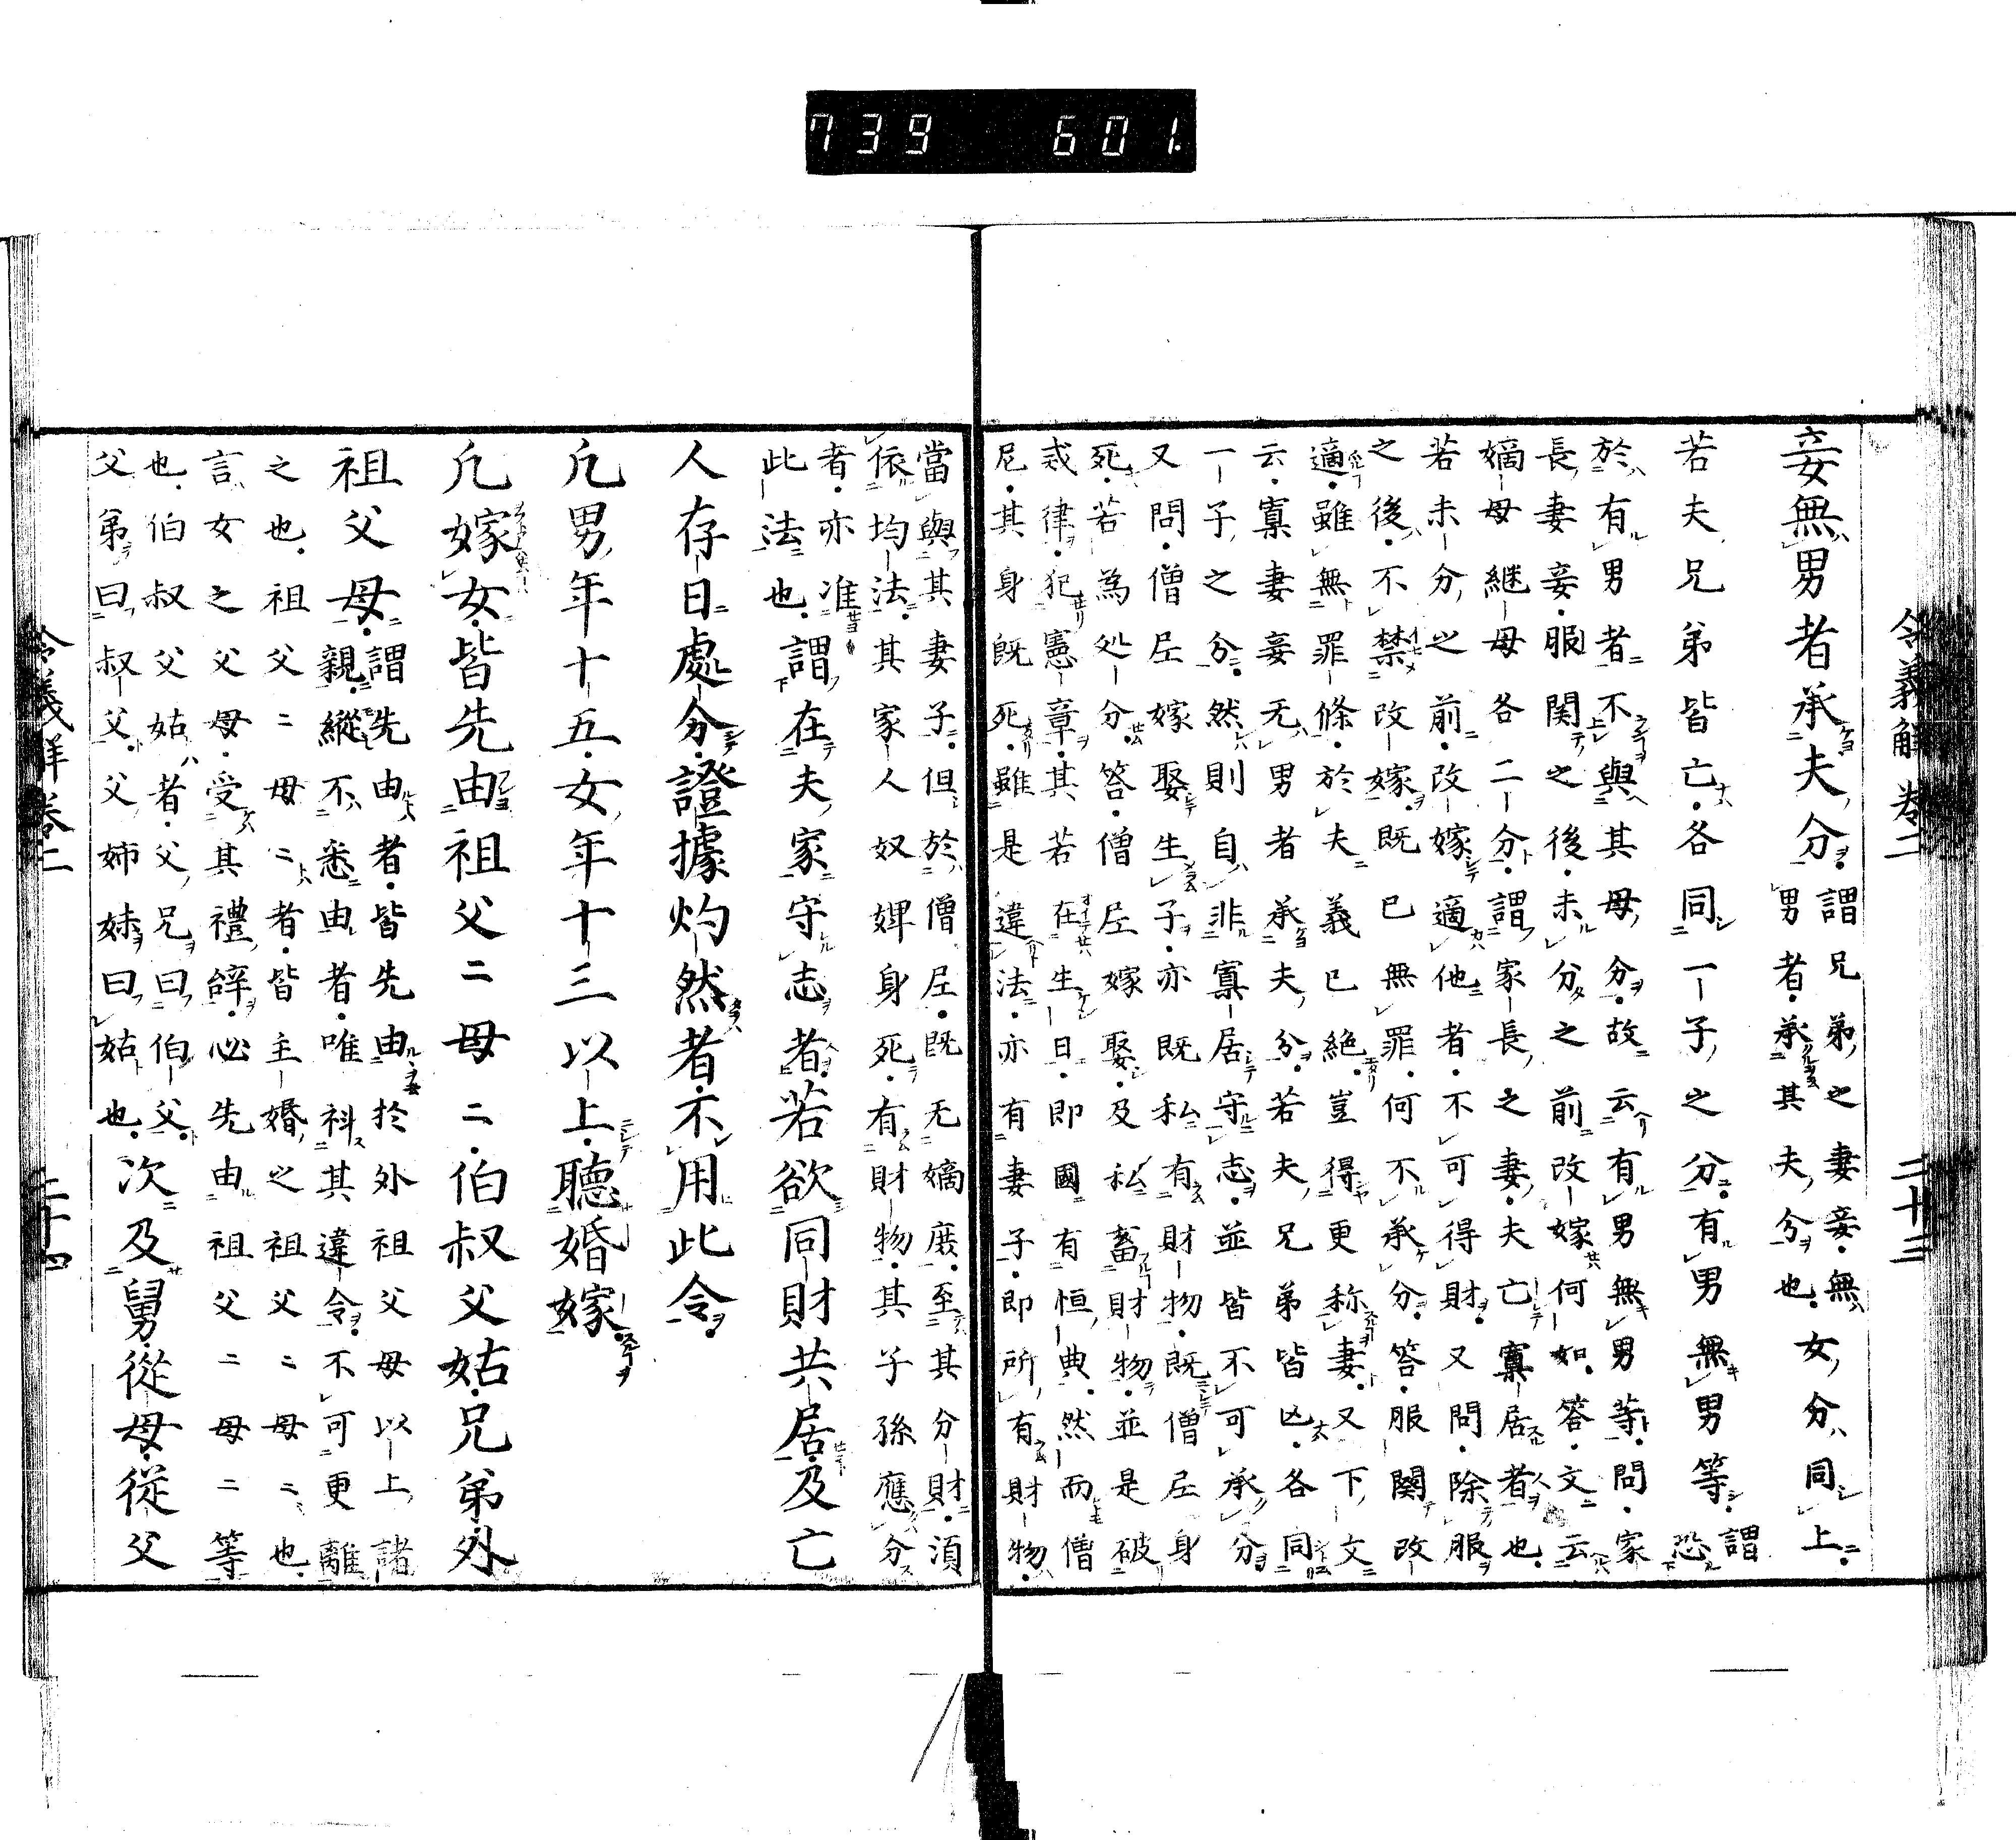 739 601.
令義解 卷二 二十三
妾無男者承夫分
謂兄弟之妻妾無
男者承其夫分也
女分同上
若夫兄弟皆亡各同一子之分有男無男等
謂恐
於有男者不與其母分故云有男無男等問家
長妻妾服闋之後未分之前改嫁何如答文云
嫡母継母各二分謂家長之妻夫亡寡居者也
若未分之前改嫁適他者不可得財又問除服
之後不禁改嫁既已無罪何不承分答服闋改
適雖無罪條於夫義已絕豈得更称妻又下文
云寡妻妾无男者承夫分若夫兄弟皆亡各同
一子之分然則自非寡居守志並皆不可承分
又問僧尼嫁娶生子亦既私有財物既僧尼身
死若為処分答僧尼嫁娶及私蓄財物並是破
戒律犯憲章其若在生日即國有恒典然而僧
尼其身既死雖是違法亦有妻子即所有財物
當與其妻子但於僧尼既无嫡庶至其分財須
依均法其家人奴婢身死有財物其子孫應分
者亦准
此法也
謂在夫家守志者若欲同財共居及亡
人存日處分證據灼然者不用此令
凢男年十五女年十三以上聽婚嫁
凢嫁女皆先由祖父二母二伯叔父姑兄弟外
祖父母
謂先由者皆先由於外祖父母以上諸
親縱不悉由者唯科其違令不可更離
之也祖父二母二者皆主婚之祖父二母二也
言女之父母受其禮辭必先由祖父二母二等
也伯叔父姑者父兄曰伯父
父弟曰叔父父姉妹曰姑也
次及舅從母從父
令義解 卷二 二十四